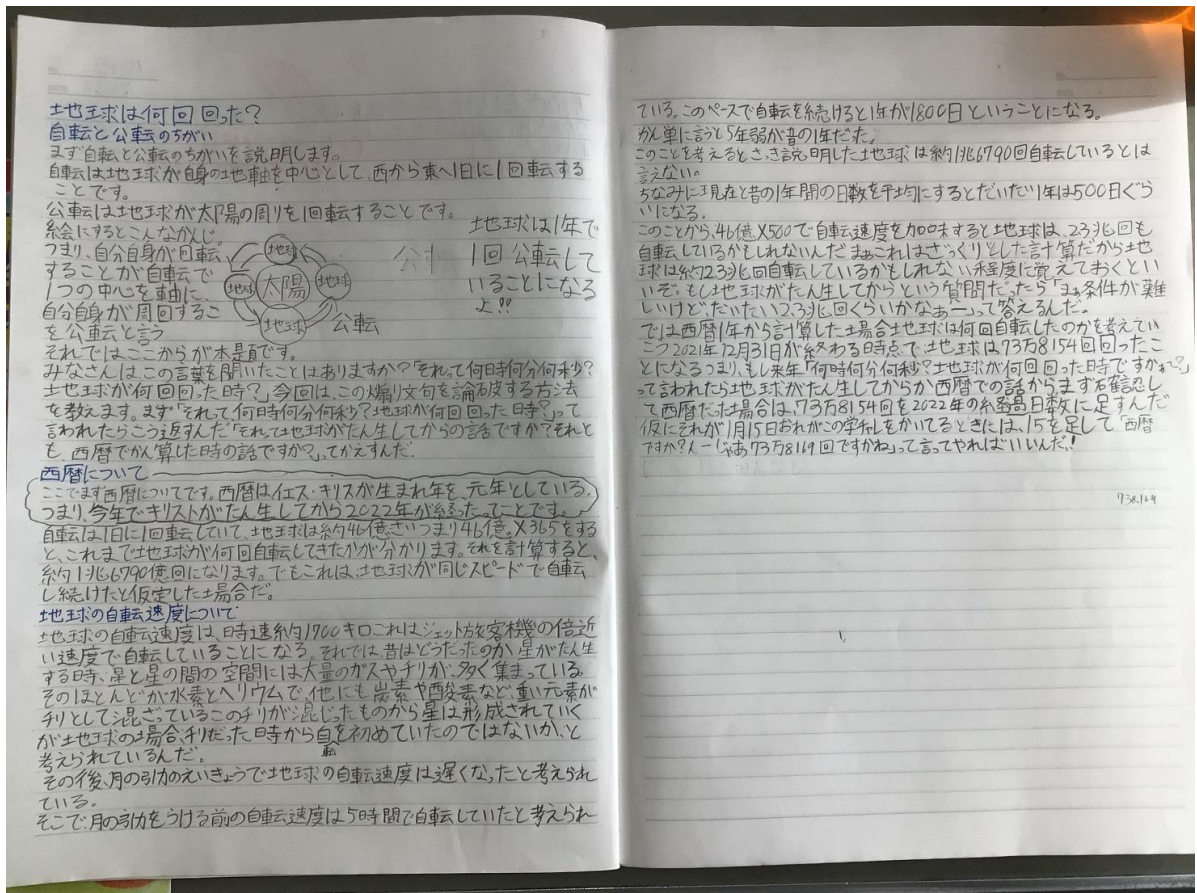 地球は何回回った?
自転と公転のちがい
まず自転と公転のちがいを説明します。
自転は地球が自身の地軸を中心として、西から東へ1日に1回転する
ことです。
公転は地球が太陽の周りを1回転することです。
絵にするとこんなかんじ。
つまり、自分自身が回転
することが自転で
1つの中心を軸に、
自分自身が周回するこ
とを公転と言う
地球
地球
太陽
地球
地球
公転
地球は1年で
1回公転して
いることになる
よ!!
それではここからが本題です。
みなさんはこの言葉を聞いたことはありますか?「それって何日時何分何秒?
地球が何回回った時?」今回は、この煽り文句を論破する方法
を教えます。まず「それって何時何分何秒?地球が何回回った日時?」って
言われたらこう返すんだ「それって地球がたん生してからの話ですか?それと
も、西暦でかん算した時の話ですか?」ってかえすんだ。
西暦について
ここでまず西暦についてです。西暦はイエス・キリスが生まれ年を、元年としている。
つまり、今年でキリストがたん生してから2022年が経ったってことです。
自転は1日に1回転していて、地球は約46億さいつまり46億。×365をする
と、これまで地球が何回自転してきたかが分かります。それを計算すると、
約1兆6790億回になります。でもこれは、地球が同じスピードで自転
し続けたと仮定した場合だ。
地球の自転速度について
地球の自転速度は、時速約1700キロこれはジェット旅客機の倍近
い速度で自転していることになる。それでは、昔はどうだったのか星がたん生
する時、星と星の間の空間には大量のガスやチリが、多く集まっている。
そのほとんどが水素とヘリウムで、他にも炭素や酸素など、重い元素が
チリとして混ざっているこのチリが混じったものから星は形成されていく
が地球の場合、チリだった時から自転を初めていたのではないか、と
考えられているんだ。
その後、月の引力のえいきょうで地球の自転速度は遅くなったと考えられ
ている。
そこで、月の引力をうける前の自転速度は5時間で自転していたと考えられ
ている。このペースで自転を続けると1年が1800日ということになる。
かん単に言うと5年弱が昔の1年だった。
このことを考えるとさっき説明した地球は約1兆6790回自転しているとは
言えない。
ちなみに現在と昔の1年間の日数を平均にするとだいたい1年は500日ぐら
いになる。
このことから、46億×500で自転速度を加味すると地球は、2.3兆回も
自転しているかもしれないんだまぁこれはざっくりとした計算だから地
球は約2.3兆回自転しているかもしれない程度に覚えておくとい
いぞ。もし地球がたん生してからという質問だったら「まぁ条件が難し
いけど、だいたい2.3兆回くらいかなぁー」って答えるんだ。
では西暦1年から計算した場合地球は何回自転したのかを考えてい
こう2021年12月31日が終わる時点で、地球は73万8154回回ったこ
とになるつまり、もし来年「何時何分何秒?地球が何回回った時ですかぁ~?」
って言われたら地球がたん生してからか西暦での話からまず確認し
て西暦だった場合は、73万8154回を2022年の経過日数に足すんだ
仮にそれが1月15日おれがこの字チャレをかいてるときには、15を足して「西暦
ですか?んーじゃあ73万8119回ですかね」って言ってやればいいんだ!
738,169